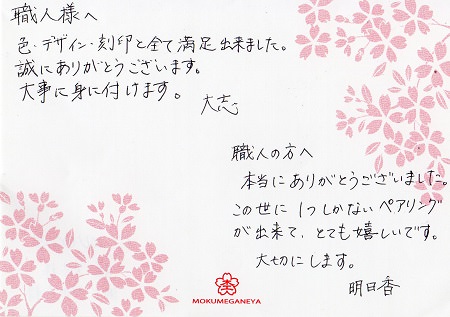 職人様へ
色・デザイン・刻印と全て満足出来ました。
誠にありがとうございます。
大事に身に付けます。
大志
職人の方へ
本当にありがとうございました。
この世に1つしかないペアリング
が出来て、とても嬉しいです。
大切にします。
明日香
MOKUMEGANEYA